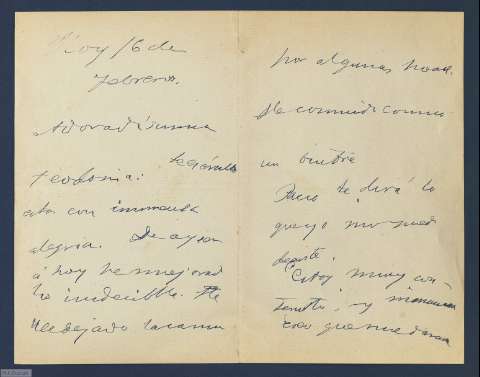 Hoy 16 de
febrero.
Adoradísima
Teodosia:
esta con inmensa
alegria. De ayer
á hoy he mejorado
lo indecible. He
dejado la cama
por algunas horas.
He comido como
un buitre
Paco te dirá lo
que yo no puedo
decirte.
Estoy muy con-
tento, y
creo que me